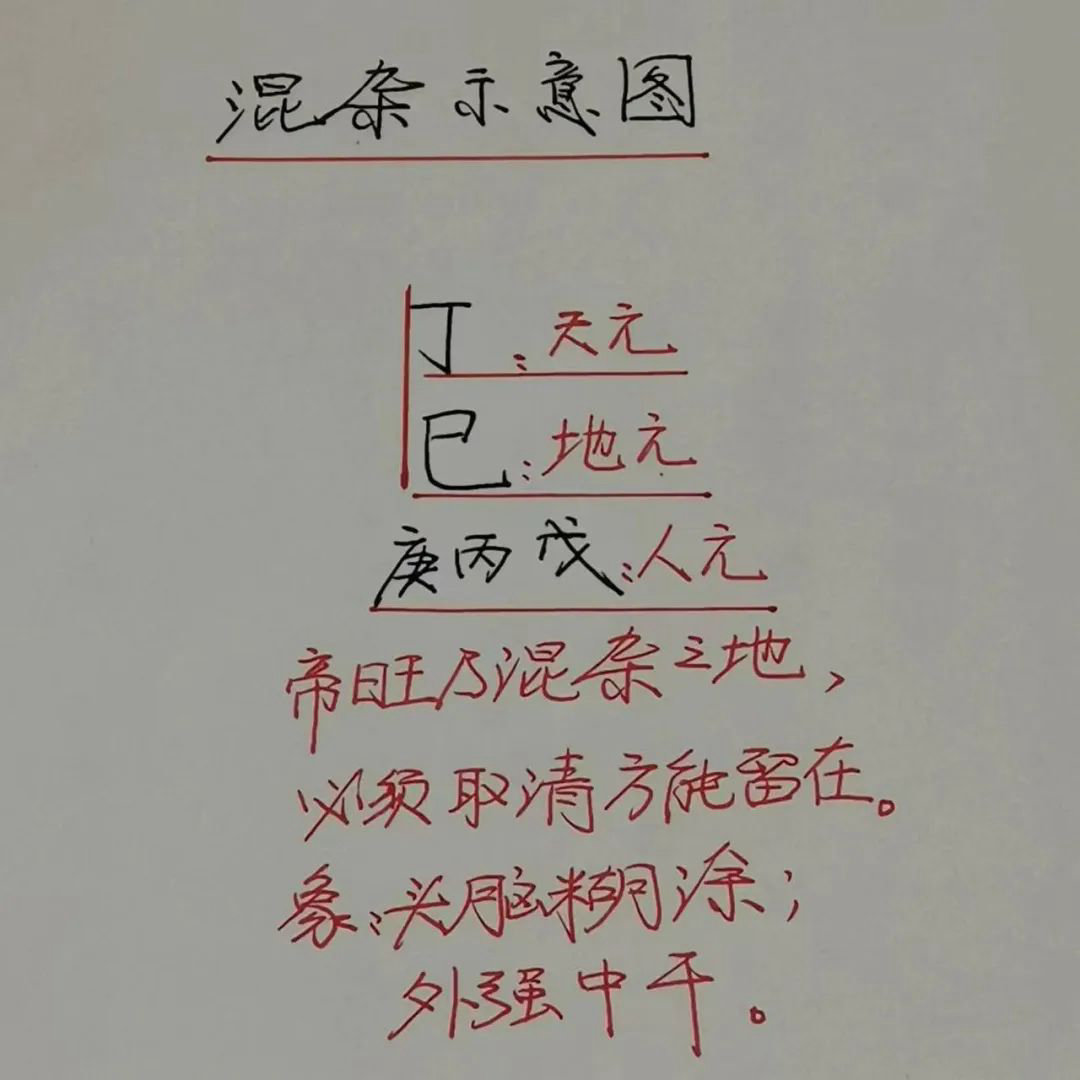 混杂示意图
丁:天元
巳:地元
庚丙戊:人元
帝旺乃混杂之地,
必须取清方能留在。
象:头脑糊涂;
外强中干。